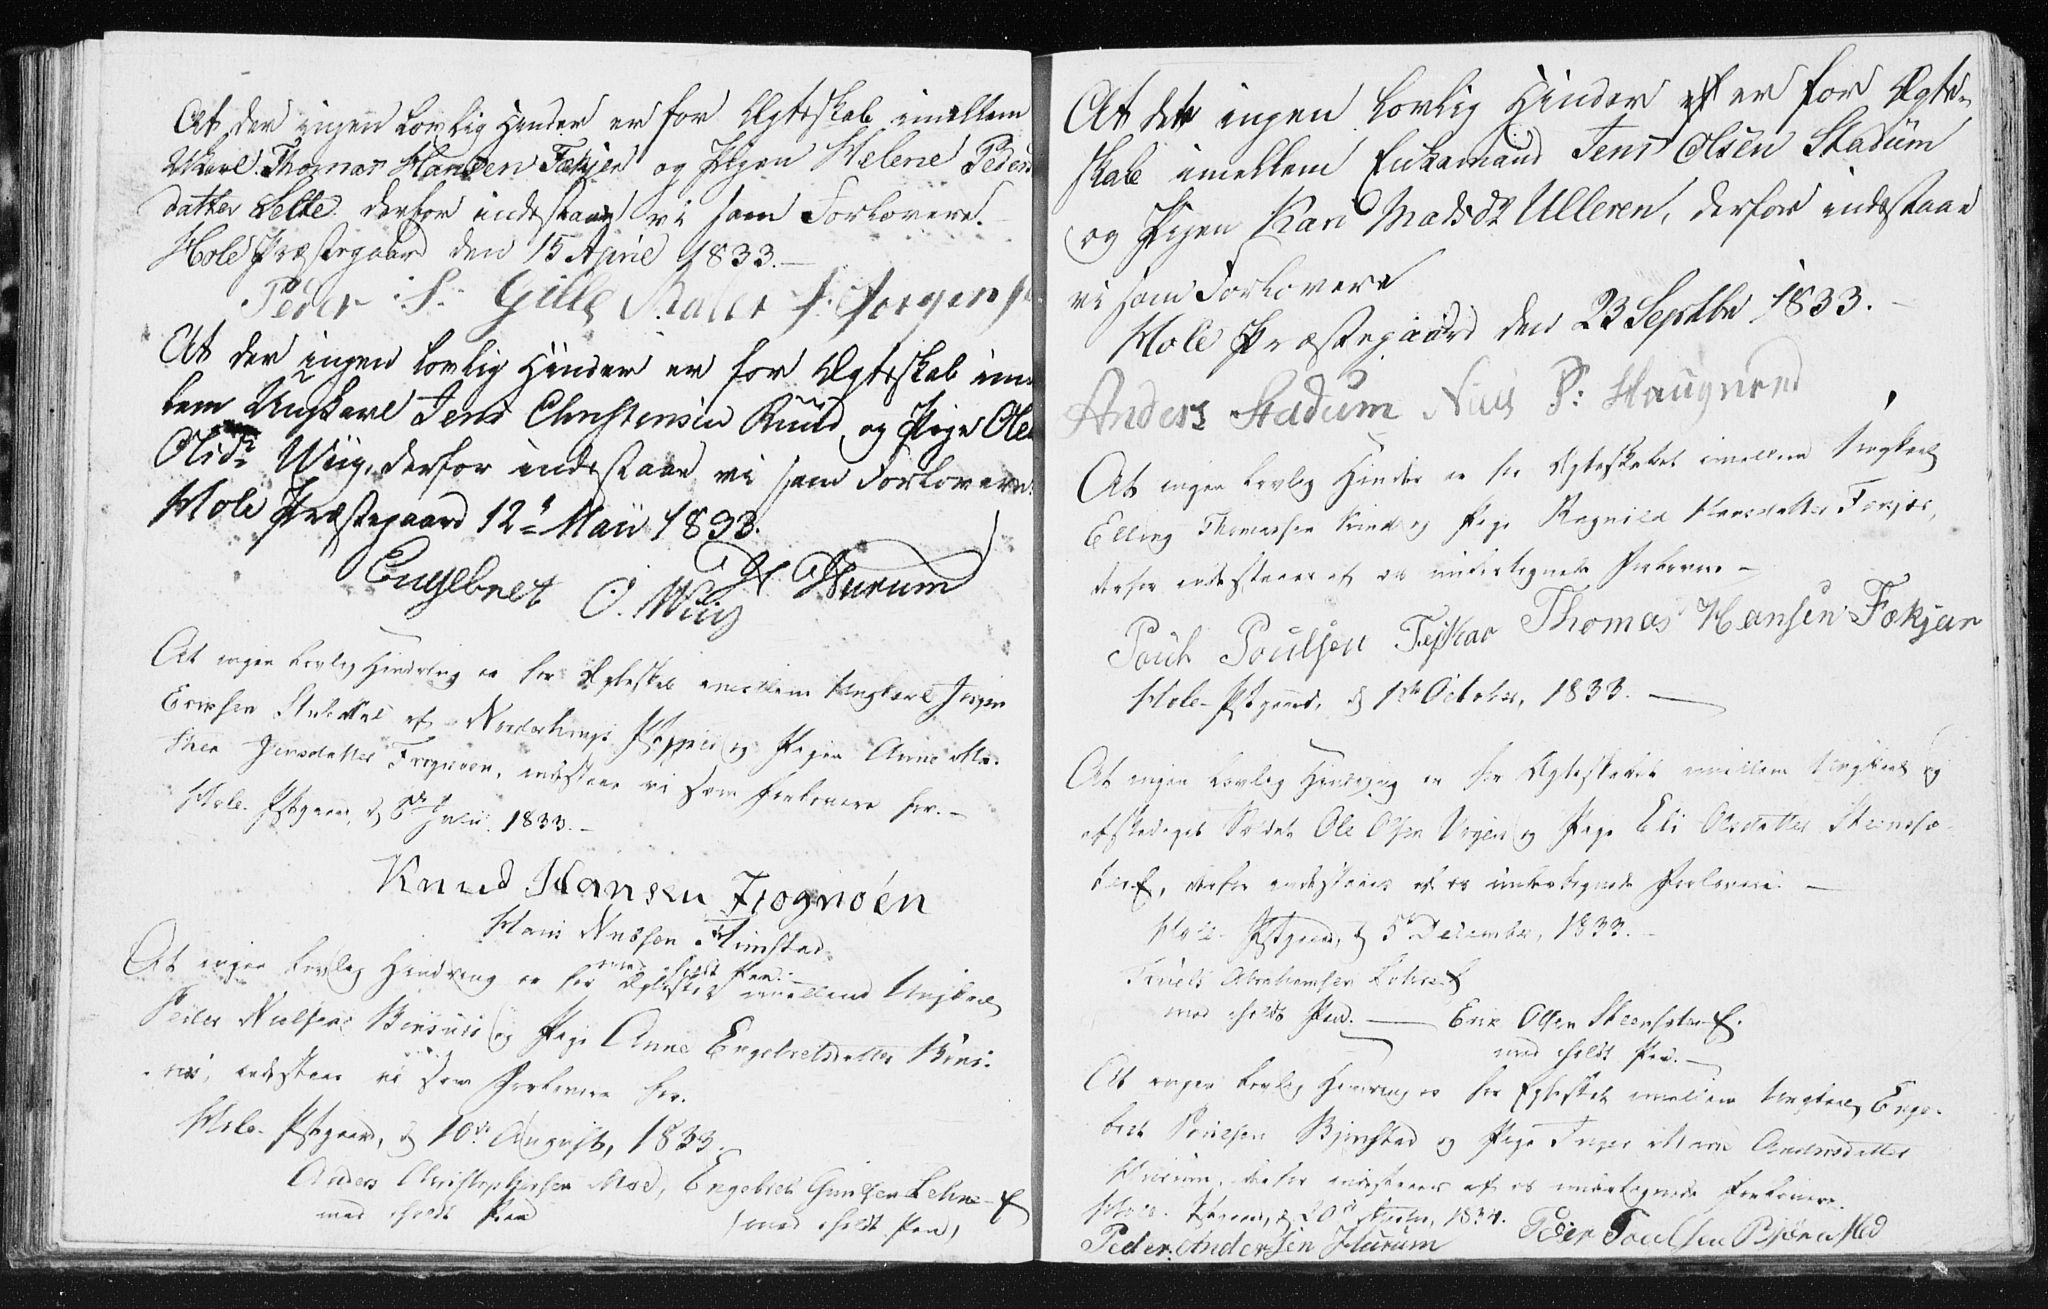 At der ingen Lovlig Hinder er for Ægteskab imellem
Thomas Hansen Fækjer og Pigen Helene Peders
datter Selte derfor indestaaer vi som Forlovere.
Hole Præstegaard den 15 April 1833.
Peder S. Gille
At der ingen Lovlig Hinder er for Ægteskab imel
lem Ungkarl Jens Christensen Ruud og Pige Ole
Olsdr Wiig, derfor indestaaer vi som Forlovere.
Hole Præstegaard 12te Maii 1833.
H Hurum
Engebret O. Wiig
At ingen Lovlig Hindring er for Ægteskab imellem Ungkarl Jørgen
Erichsen af Norderhougs og Pigen Anne Ma-
thea Jensdatter Frognøen, indestaae vi som Forlovere for.
Hole Pstgaard, d 8de Juli 1833.
Knud Hansen Frognøen
Hans Nielsen Fimstad
med holdt Pen.
At ingen Lovlig Hindring er for Ægteskab imellem Ungkarl
Peder Nielsen og Pige Anne Engebretsdatter
indestaae vi som Forlovere for.
Hole Pstgaard, d 10de August, 1833.
Anders Christophersen Moe, Engebret Lehne
med holdt Pen (med holdt Pen)
At der ingen Lovlig Hinder er for Ægte-
skab imellem Enkemand Jens Olsen Stadum
og Pigen Kari Madsdr Ulleren, derfor indestaaer
vi som Forlovere
Hole Præstegaard den 23 Septbr 1833.
Anders Stadum Niels P: Haugnred
At ingen Lovlig Hinder er for Ægteskabet imellem Ungkarl
Elling Thomassen og Pige Ragnild Hansdatter Fækjer,
derfor indestaaes af os undertegnede Forlovere
Poul Poulsen Thomas Hansen Fækjær
Hole Pstgaard, d 1ste October, 1833.
At ingen Lovlig Hindring er for Ægteskabet imellem Ungkarl og
afskediget Soldat Ole Olsen og Pige Eli Olsdatter Steensæ-
derfor indestaaes af os undertegnede Forlovere.
Hole Pstgaard, d 5te December, 1833.
Abrahamsen
med holdt Pen. Erik Olsen
med holdt Pen.
At ingen Lovlig Hindring er for Egteskab imellem Ungkarl Enge-
bret Poulsen Bjørnstad og Pige Inger Marie Andersdatter
Hurum, derfor indestaaes af os undertegnede Forlovere.
Hole Pstgaard, d 20de 1834.
Peder Andersen Hurum Peder Poulsen Bjørnsted